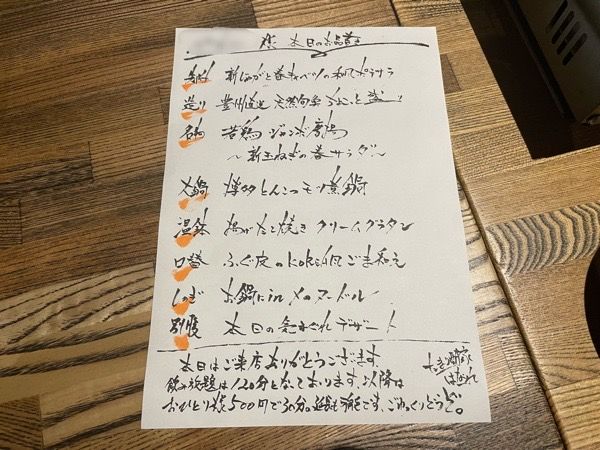 様 本日のお品書き
新じゃがと春キャベツの和風ポテサラ
造り 豊州直送 天然旬魚 ちょこっと盛り
名物 若鶏 ジャンボ唐揚
～新玉ねぎの春サラダ～
火鍋 博多とんこつモツ煮鍋
温鉢 焼き クリームグラタン
口替 ふぐ皮のごま和え
お鍋にin〆のヌードル
別腹 本日の気まぐれデザート
本日はご来店ありがとうございます。
飲み放題は120分となっております。以降は
おひとり様500円で30分の延長も可能です。ごゆっくりどうぞ。
はなれ